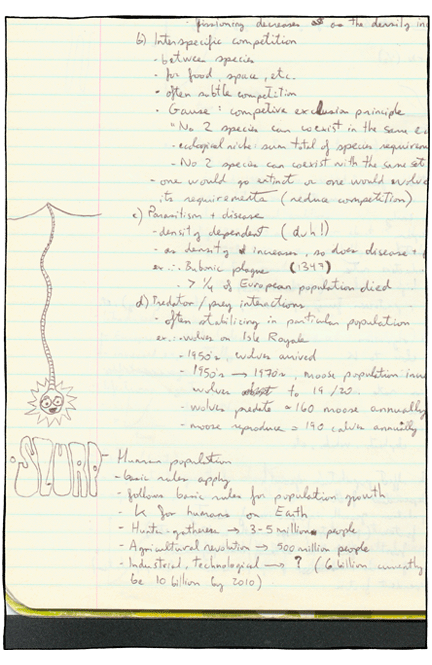 decreases as the density in
b) Interspecific competition
- between species
- for food, space, etc.
• often subtle competition
• Gause: competive exclusion principle
"No 2 species can coexist in the same e
- ecological niche - sum total of species requirem
- No 2 species can coexist with the same set
- one would go extinct or one would evolve
its requirements (reduce competition)
c) Parasitism + disease
- density dependent (duh!)
- as density increases, so does disease +
ex.:. Bubonic plague (1347)
- > 1/4 of European population died
d) Predator/prey interactions
- often stabilizing in particular population
ex.:- wolves on Isle Royale
- 1950's, wolves arrived
- 1950's → 1970's, moose population incr
wolves to 19/20.
- wolves predate ≈ 160 moose annually
- moose reproduce = 190 calves annually
SLURP
- Human population
- basic rules apply
- follows basic rules for population growth
- K for humans on Earth
- Hunter-gatherer → 3-5 million people
- Agricultural revolution → 500 million people
- Industrial, technological → ? (6 billion currently
be 10 billion by 2010)